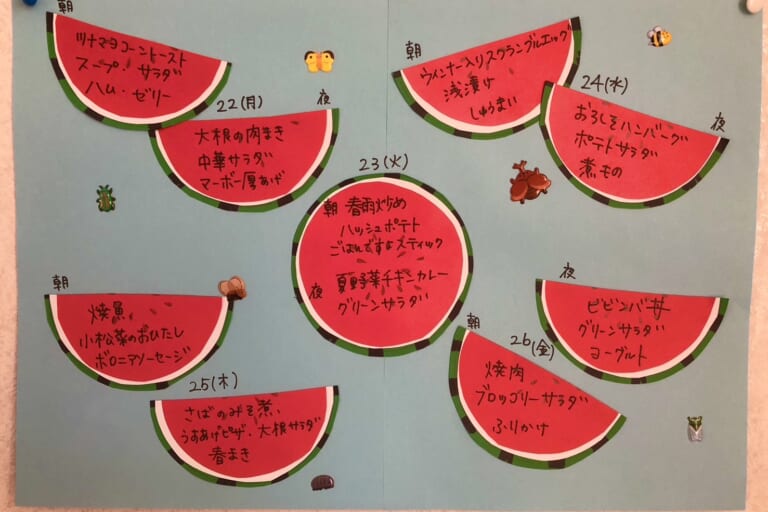 朝
ツナマヨコーントースト
スープ・サラダ
ハム・ゼリー
22(月)
夜
大根の肉まき
中華サラダ
マーボー厚あげ
23(火)
朝 春雨炒め
ハッシュポテト
ごはんですよスティック
夜 夏野菜チキンカレー
グリーンサラダ
朝
ウインナー入りスクランブルエッグ
浅漬け
しゅうまい
24(水)
夜
おろしそハンバーグ
ポテトサラダ
煮もの
朝
焼魚
小松菜のおひたし
ボロニアソーセージ
25(木)
さばのみそ煮
うすあげピザ・大根サラダ
春まき
朝
26(金)
焼肉
ブロッコリーサラダ
ふりかけ
夜
ビビンバ丼
グリーンサラダ
ヨーグルト